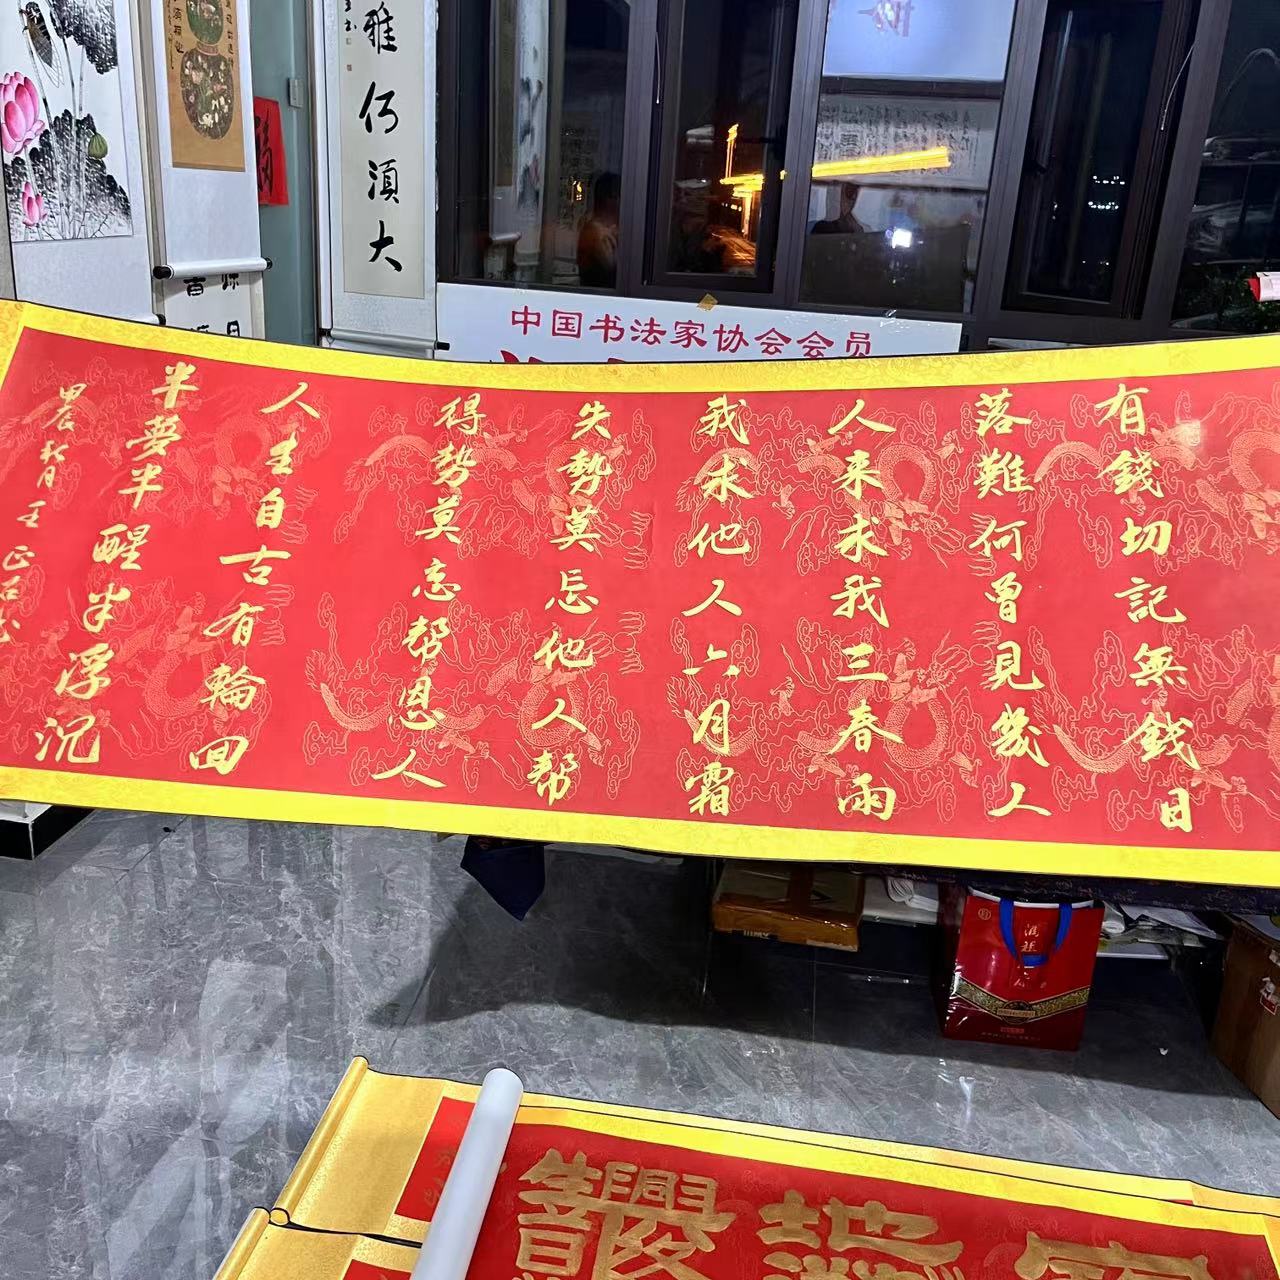 有錢切記無錢日
落難何曾見幾人
人来求我三春雨
我求他人六月霜
失势莫忘他人帮
得势莫忘帮恩人
人生自古有輪回
半夢半醒半浮沉
中国书法家协会会员
雅何須大